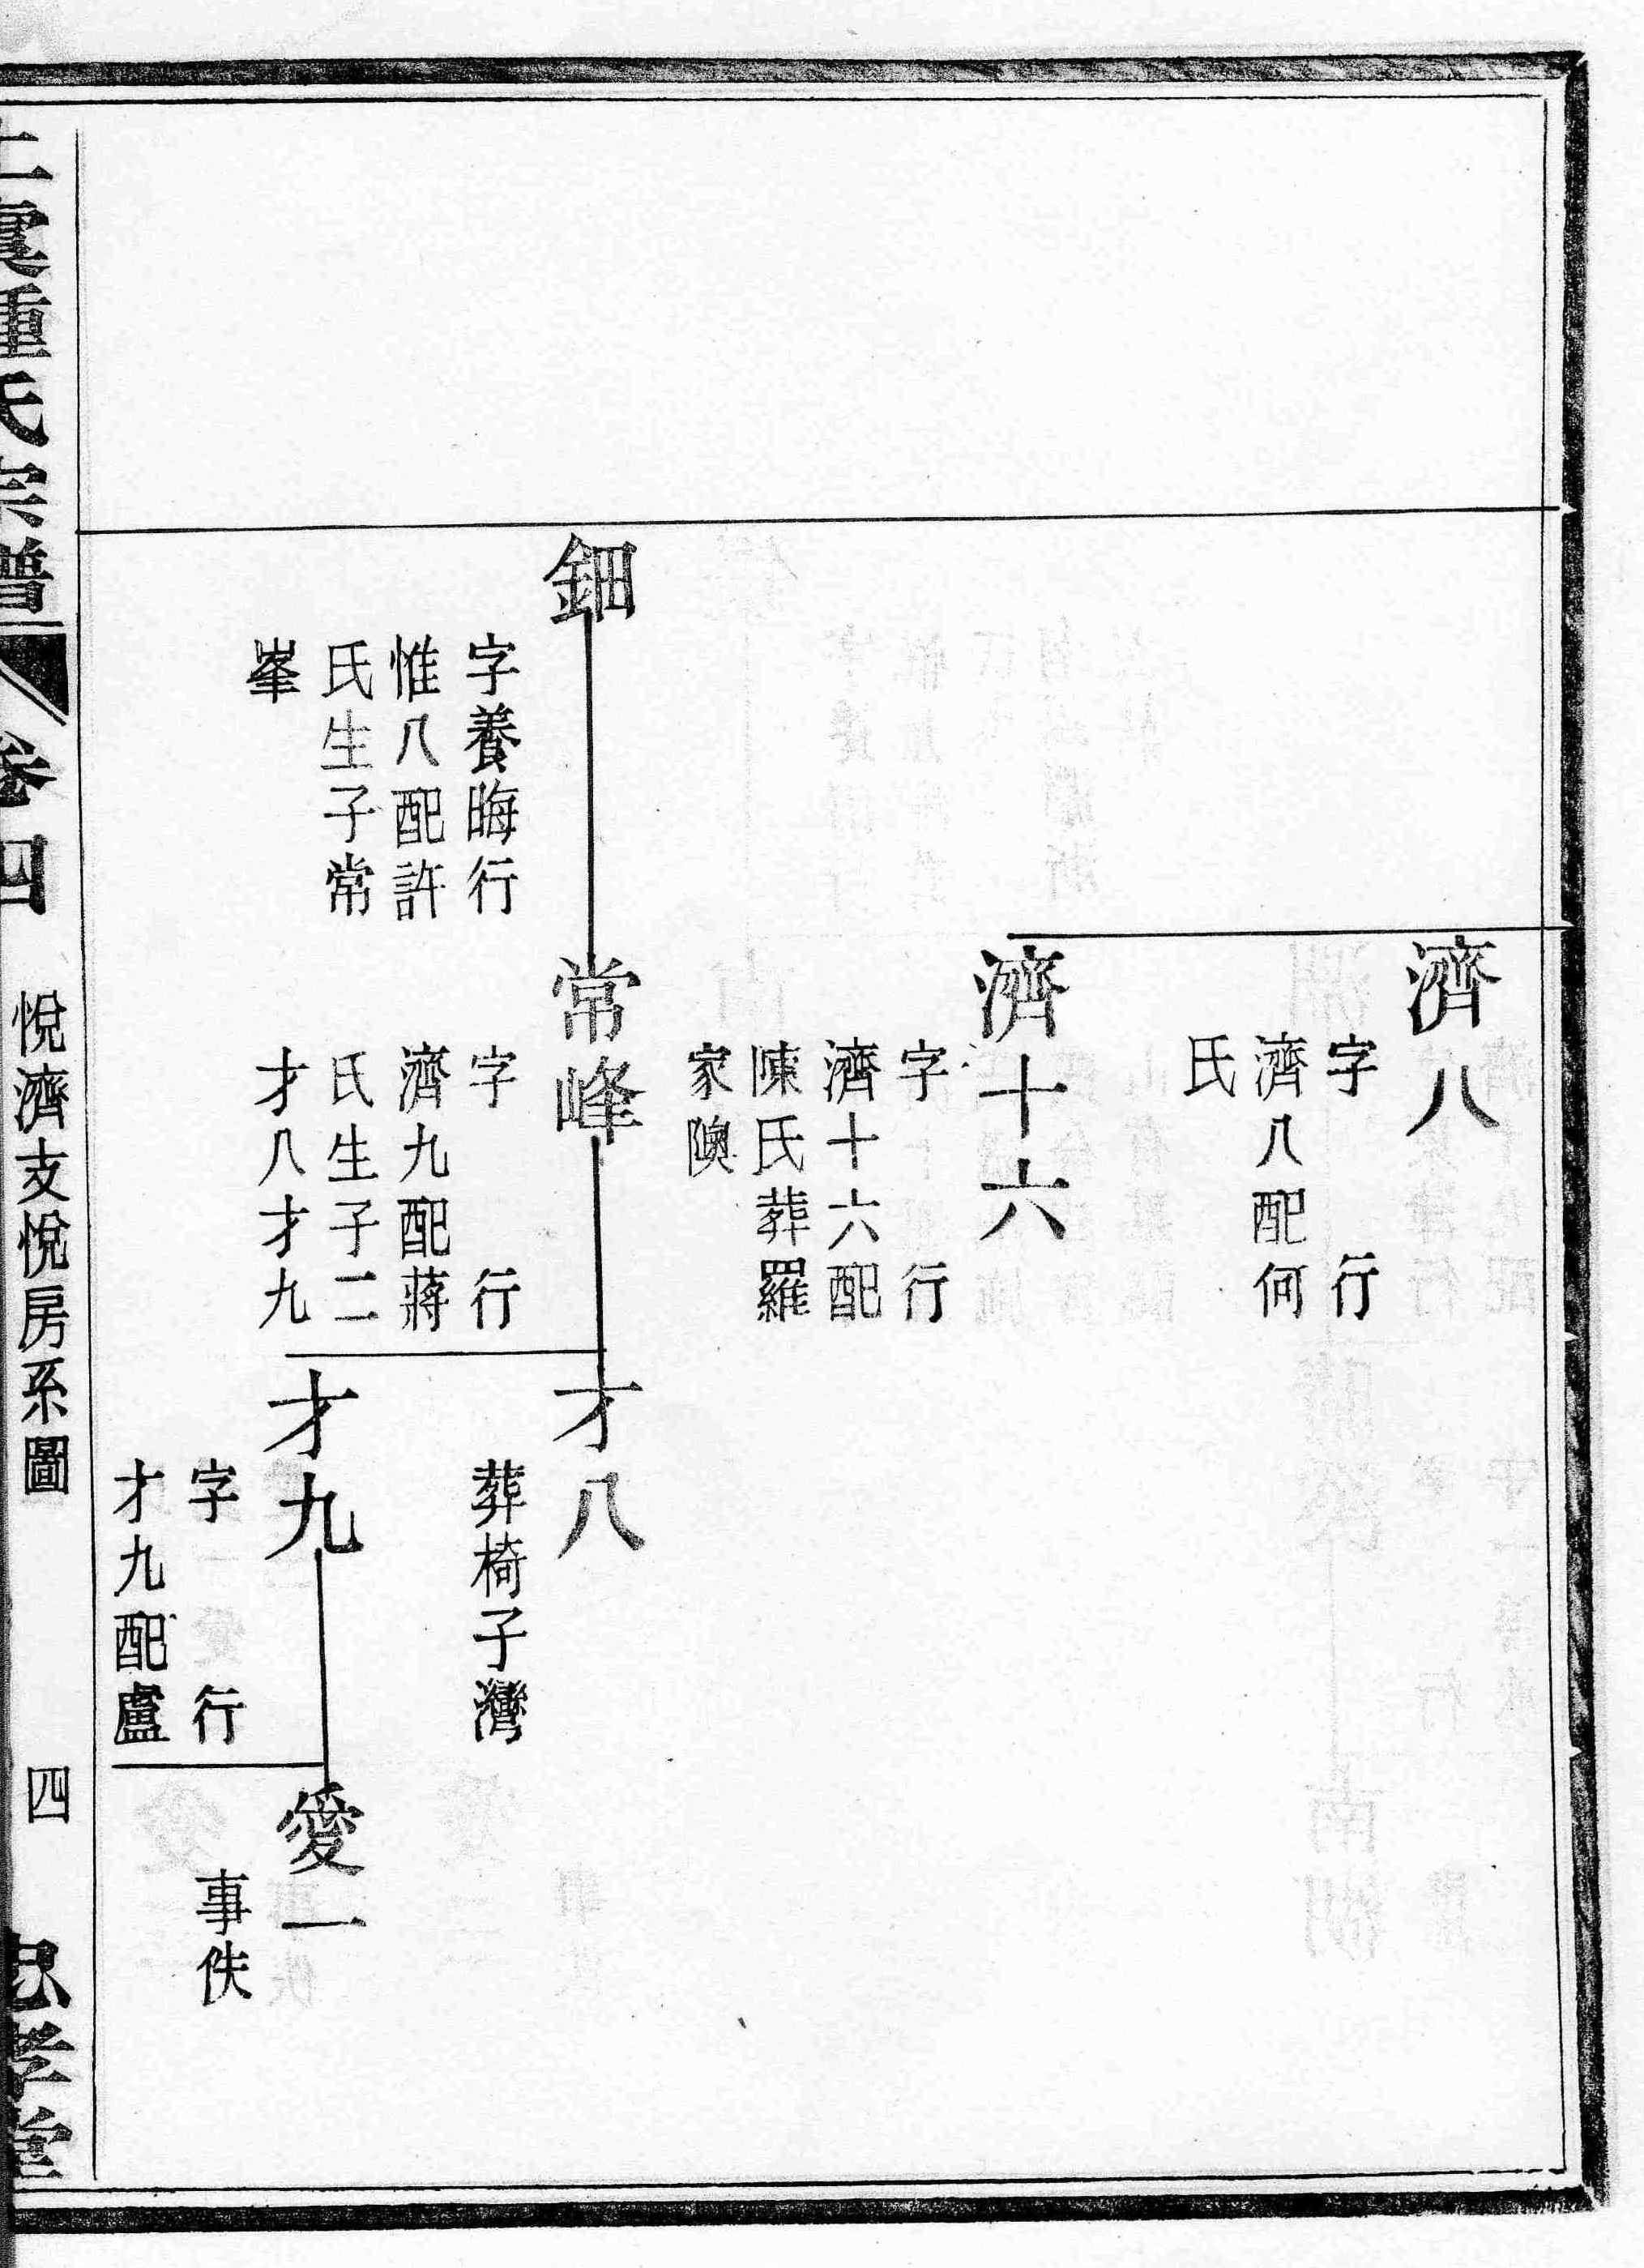 濟八
字 行
濟八配何
氏
濟十六
字 行
濟十六配
陳氏葬羅
家隩
鈿
字養晦行
惟八配許
氏生子常
峯
常峰
字 行
濟九配蔣
氏生子二
才八才九
才八
葬椅子灣
才九
字 行
才九配盧
愛一
事佚
上虞種氏宗譜
卷四
悅濟支悅房系圖
四
忠孝堂